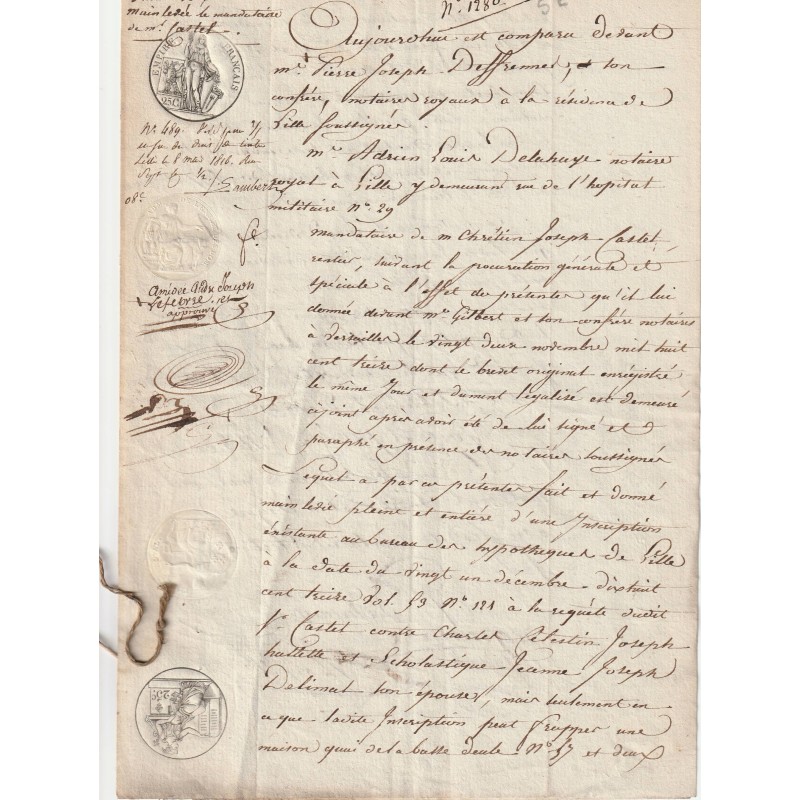 mainlevée le mandataire
de mr. Castel
EMPIRE FRANÇAIS
25C
No. 1280.
52
Aujourdhui est comparu devant
me. Pierre Joseph Deffrennes, & son
confrère, notaires royaux à la résidence de
Lille soussignés
No. 489.
Lille le 8 mai 1816.
Lambert
08c.
me. Adrien Louis Delahaye notaire
royal à Lille y demeurant rue de l'hopital
militaire No. 29
mandataire de m Chrétien Joseph Castel
rentier, suivant la procuration générale et
spéciale à l'effet des présentes qu'il lui
donnée devant me. Gilbert et son confrère notaires
à Versailles le vingt deux novembre mil huit
cent treize dont le brevet original enrégistré
le même Jour et dument légalisé est demeuré
cijoint après avoir été de lui signé et
paraphé en présence des notaires soussignés
Amédée Joseph
Lefevre
approuvé
Lequel a par ces présentes fait et donné
mainlevée pleine et entiére d'une Inscription
éxistante au bureau des hypotheques de Lille
à la date du vingt un décembre dixhuit
cent treize Vol. 53 No. 181 à la requête dudit
Sr. Castel contre Charles Célestin Joseph
hallette et Scholastique Jeanne Joseph
Delimal son épouse, mais seulement en
ce que ladite Inscription peut frapper une
maison quai de la basse deule No. 37 et deux
25c.